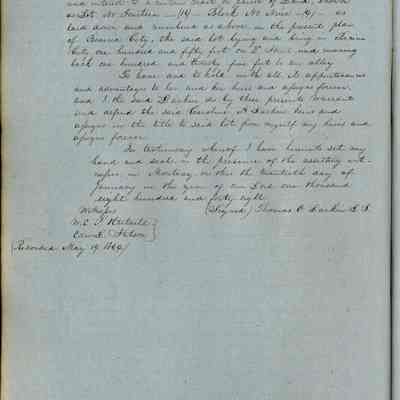 and interest to a certain tract or parcel of Land, known
as Lot No Fourteen - 14 - Block No Nine - 9 - as
laid down and numbered as above in the present plan
of Benicia City, the said lot lying and being in Benicia
City one hundred and fifty feet on D Street and running
back one hundred and twenty five feet to an alley
To have and to hold, with all its appurtenances
and advantages to her and her heirs and assigns forever
and I the said Larkin do by these presents warrant
and defend the said Caroline A Larkin heirs and
assigns in the title to said lot from myself my heirs and
assigns forever
In testimony whereof I have hereunto set my
hand and seal in the presence of the assisting wit-
nesses, in Monterey on this the twentieth day of
January in the year of our Lord one thousand
eight hundred and forty eight
Witness (Signed) Thomas O Larkin L.S.
W. C. J.
Edwd
(Recorded May 19